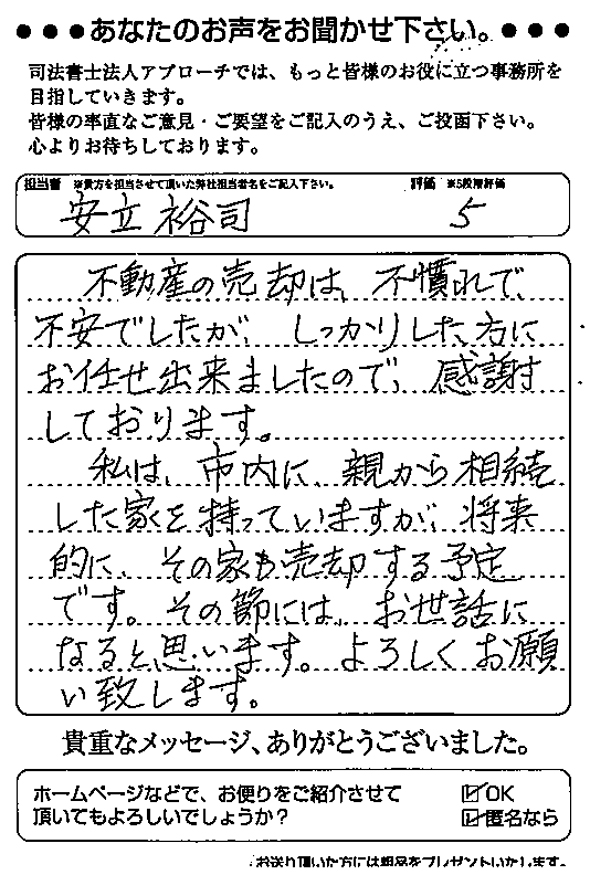 ●●●あなたのお声をお聞かせ下さい。●●●
司法書士法人アプローチでは、もっと皆様のお役に立つ事務所を
目指していきます。
皆様の率直なご意見・ご要望をご記入のうえ、ご投函下さい。
心よりお待ちしております。
担当者 ※貴方を担当させて頂いた弊社担当者名をご記入下さい。 評価 ※5段階評価
安立 裕司 5
不動産の売却は、不慣れで、
不安でしたが、しっかりした方に
お任せ出来ましたので、感謝
しております。
私は、市内に、親から相続
した家を持っていますが、将来
的に、その家も売却する予定
です。その節には、お世話に
なると思います。よろしくお願
い致します。
貴重なメッセージ、ありがとうございました。
ホームページなどで、お便りをご紹介させて ☑OK
頂いてもよろしいでしょうか? ☑匿名なら
お送り頂いた方には粗品をプレゼントいたします。